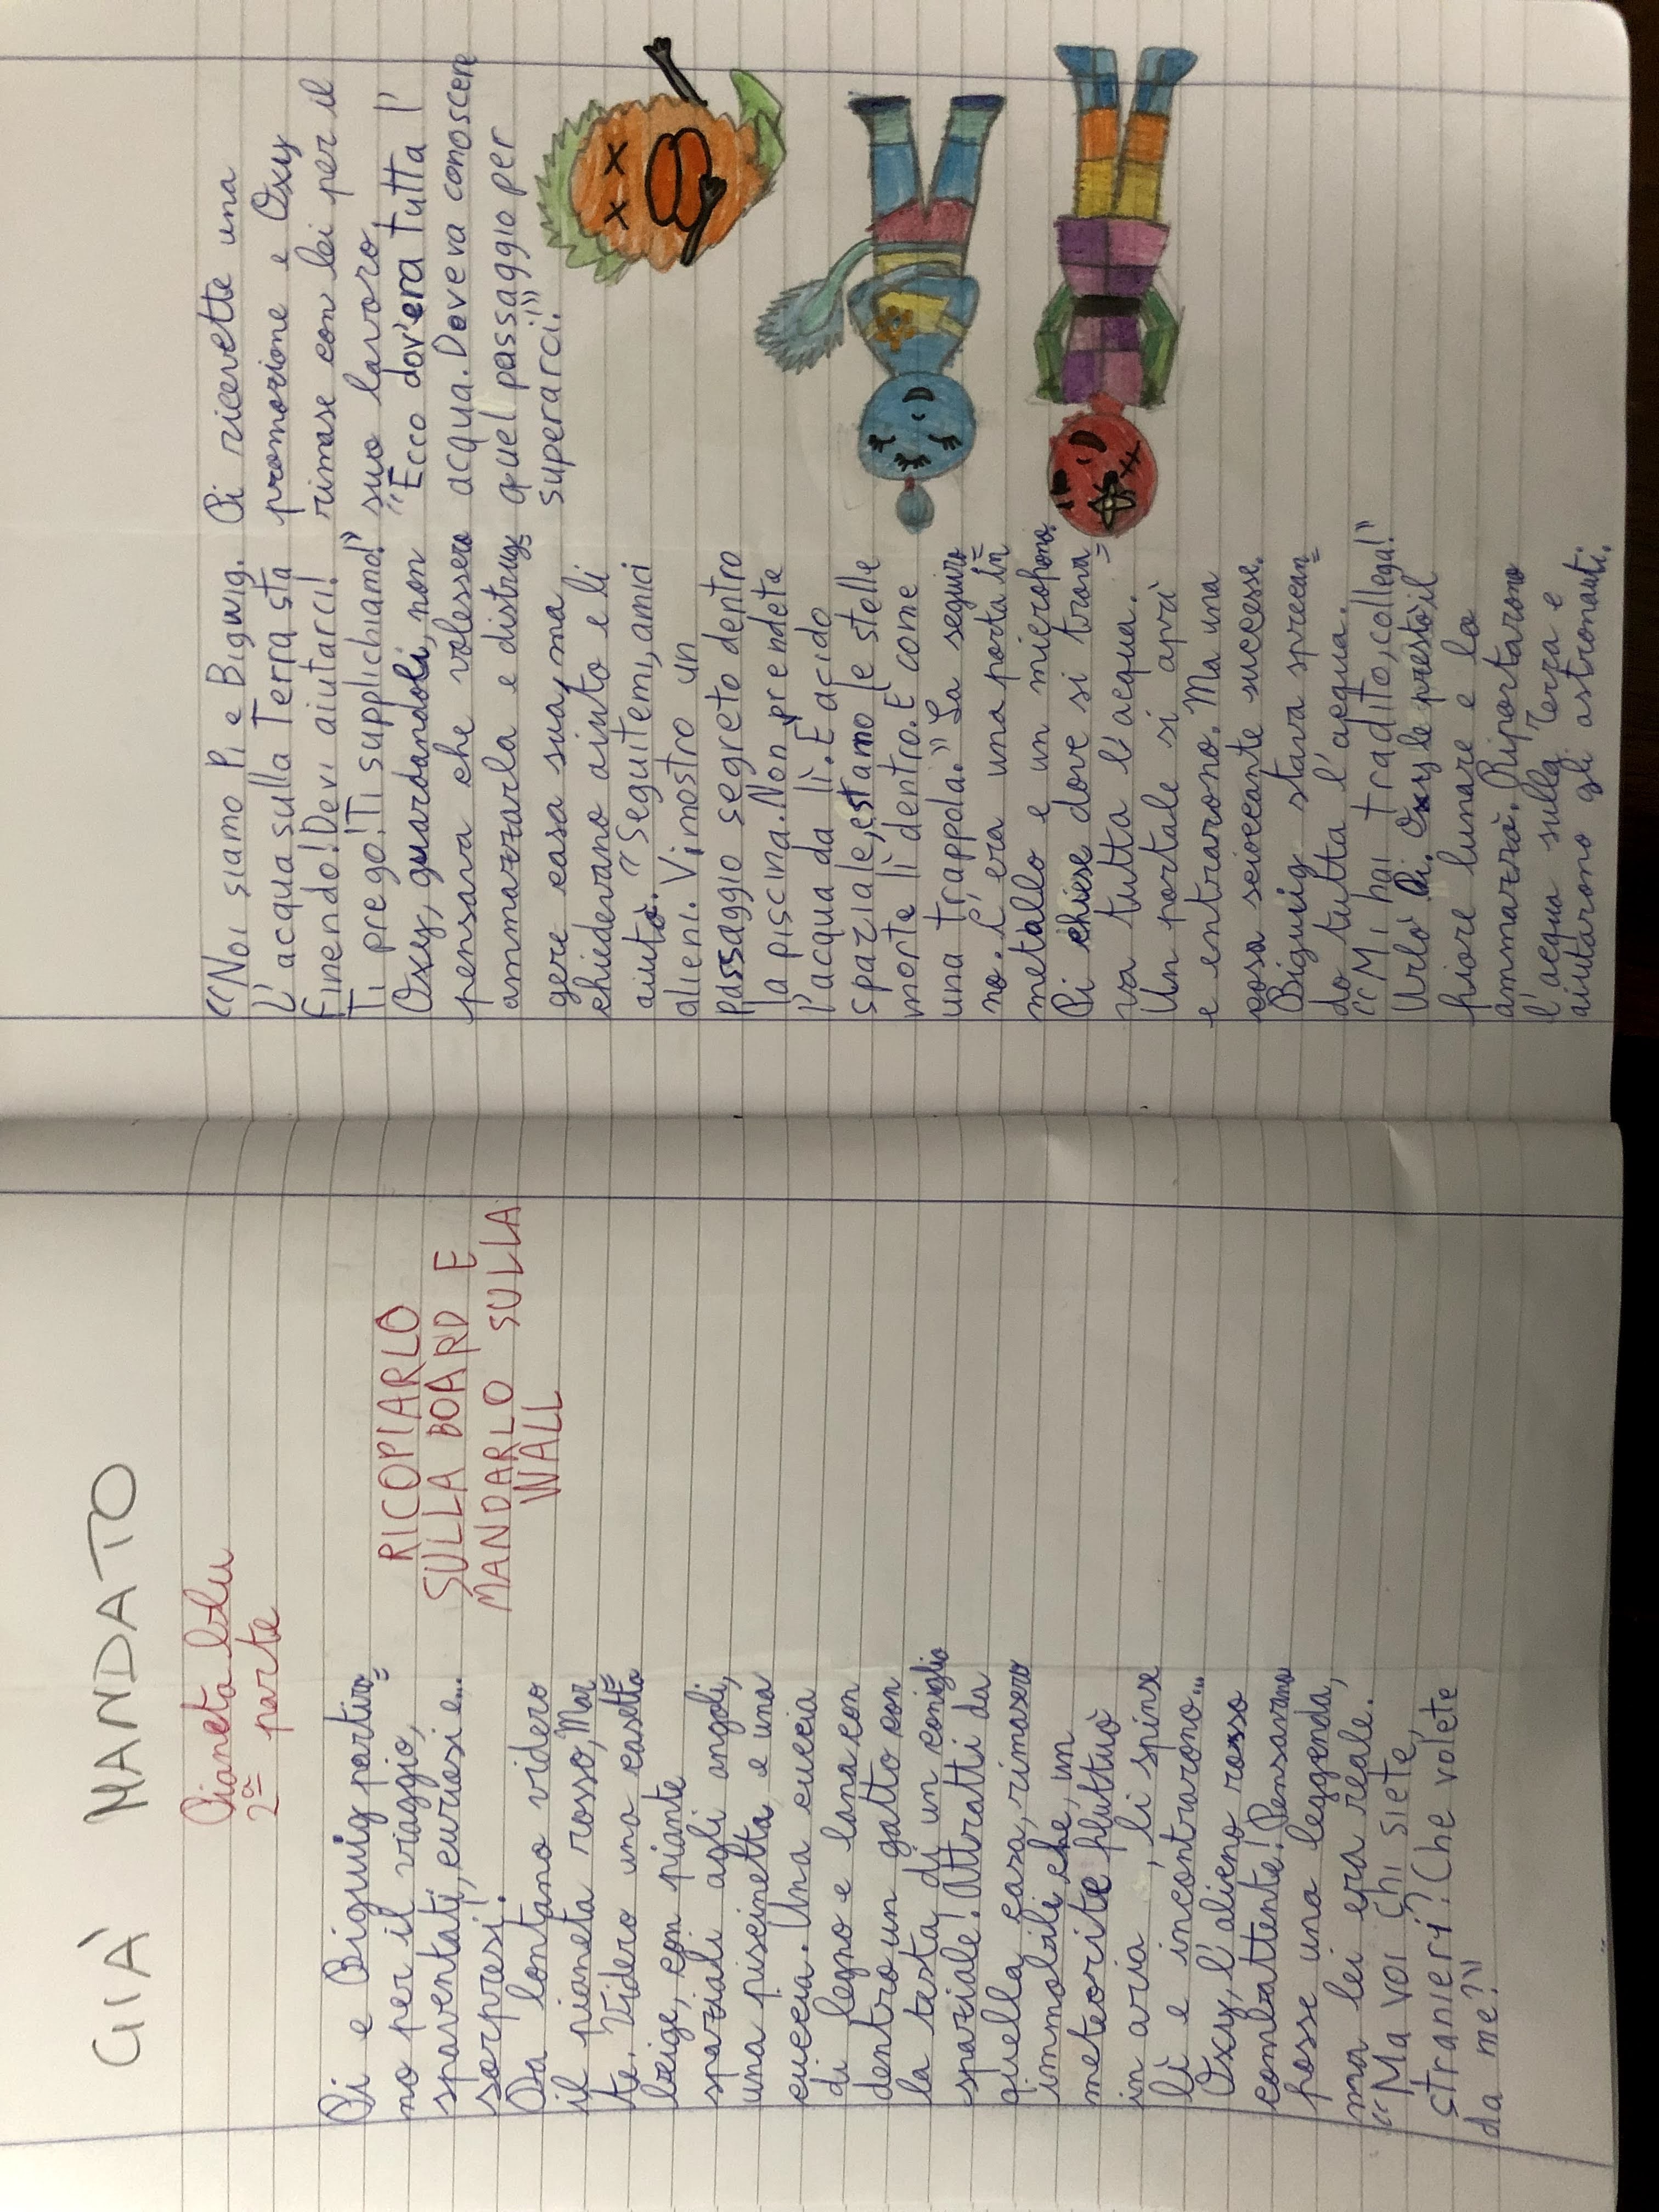 GIÀ MANDATO
Pianeta blu
2ª parte
RICOPIARLO
SULLA BOARD E
MANDARLO SULLA
WALL
Pi e Biguig partiro=
no per il viaggio,
spaventati, curiosi e...
sorpresi!
Da lontano videro
il pianeta rosso, Mar
te. Videro una casetta=
beige, con piante
spaziali agli angoli,
una piscinetta e una
cuccia. Una cuccia
di legno e lana con
dentro un gatto con
la testa di un coniglio
spaziale! Attratti da
quella casa, rimasero
immobili che, un
meteorite fluttuò
in aria, li spinse
lì e incontrarono...
Oxy, l'alieno rosso
combattente! Pensarono
fosse una leggenda,
ma lei era reale.
“Ma voi chi siete,
stranieri? Che volete
da me?”
“Noi siamo Pi e Biguig.
L'acqua sulla Terra sta
finendo! Devi aiutarci!
Ti prego! Ti supplichiamo!”
Oxy, guardandoli, non
pensava che volessero
ammazzarla e distrug=
gere casa sua, ma
chiedevano aiuto e li
aiutò. “Seguitemi, amici
alieni. Vi mostro un
passaggio segreto dentro
la piscina. Non prendete
l'acqua da lì. È acido
spaziale, estamo le stelle
morte lì dentro. È come
una trappola.” La seguiro=
no. C'era una porta in
metallo e un microfono.
Pi chiese dove si trova=
va tutta l'acqua.
Un portale si aprì
e entrarono. Ma una
cosa scioccante successe.
Biguig stava sprecan=
do tutta l'acqua.
“Mi hai tradito, collega!”
Urlò Pi. Oxy le prestò il
fiore lunare e lo
ammazzò. Riportarono
l'acqua sulla Terra e
aiutarono gli astronauti.
Pi ricevette una
promozione e Oxy
rimase con lei per il
suo lavoro.
“Ecco dov'era tutta l'
acqua. Doveva conoscere
quel passaggio per
superarci.”